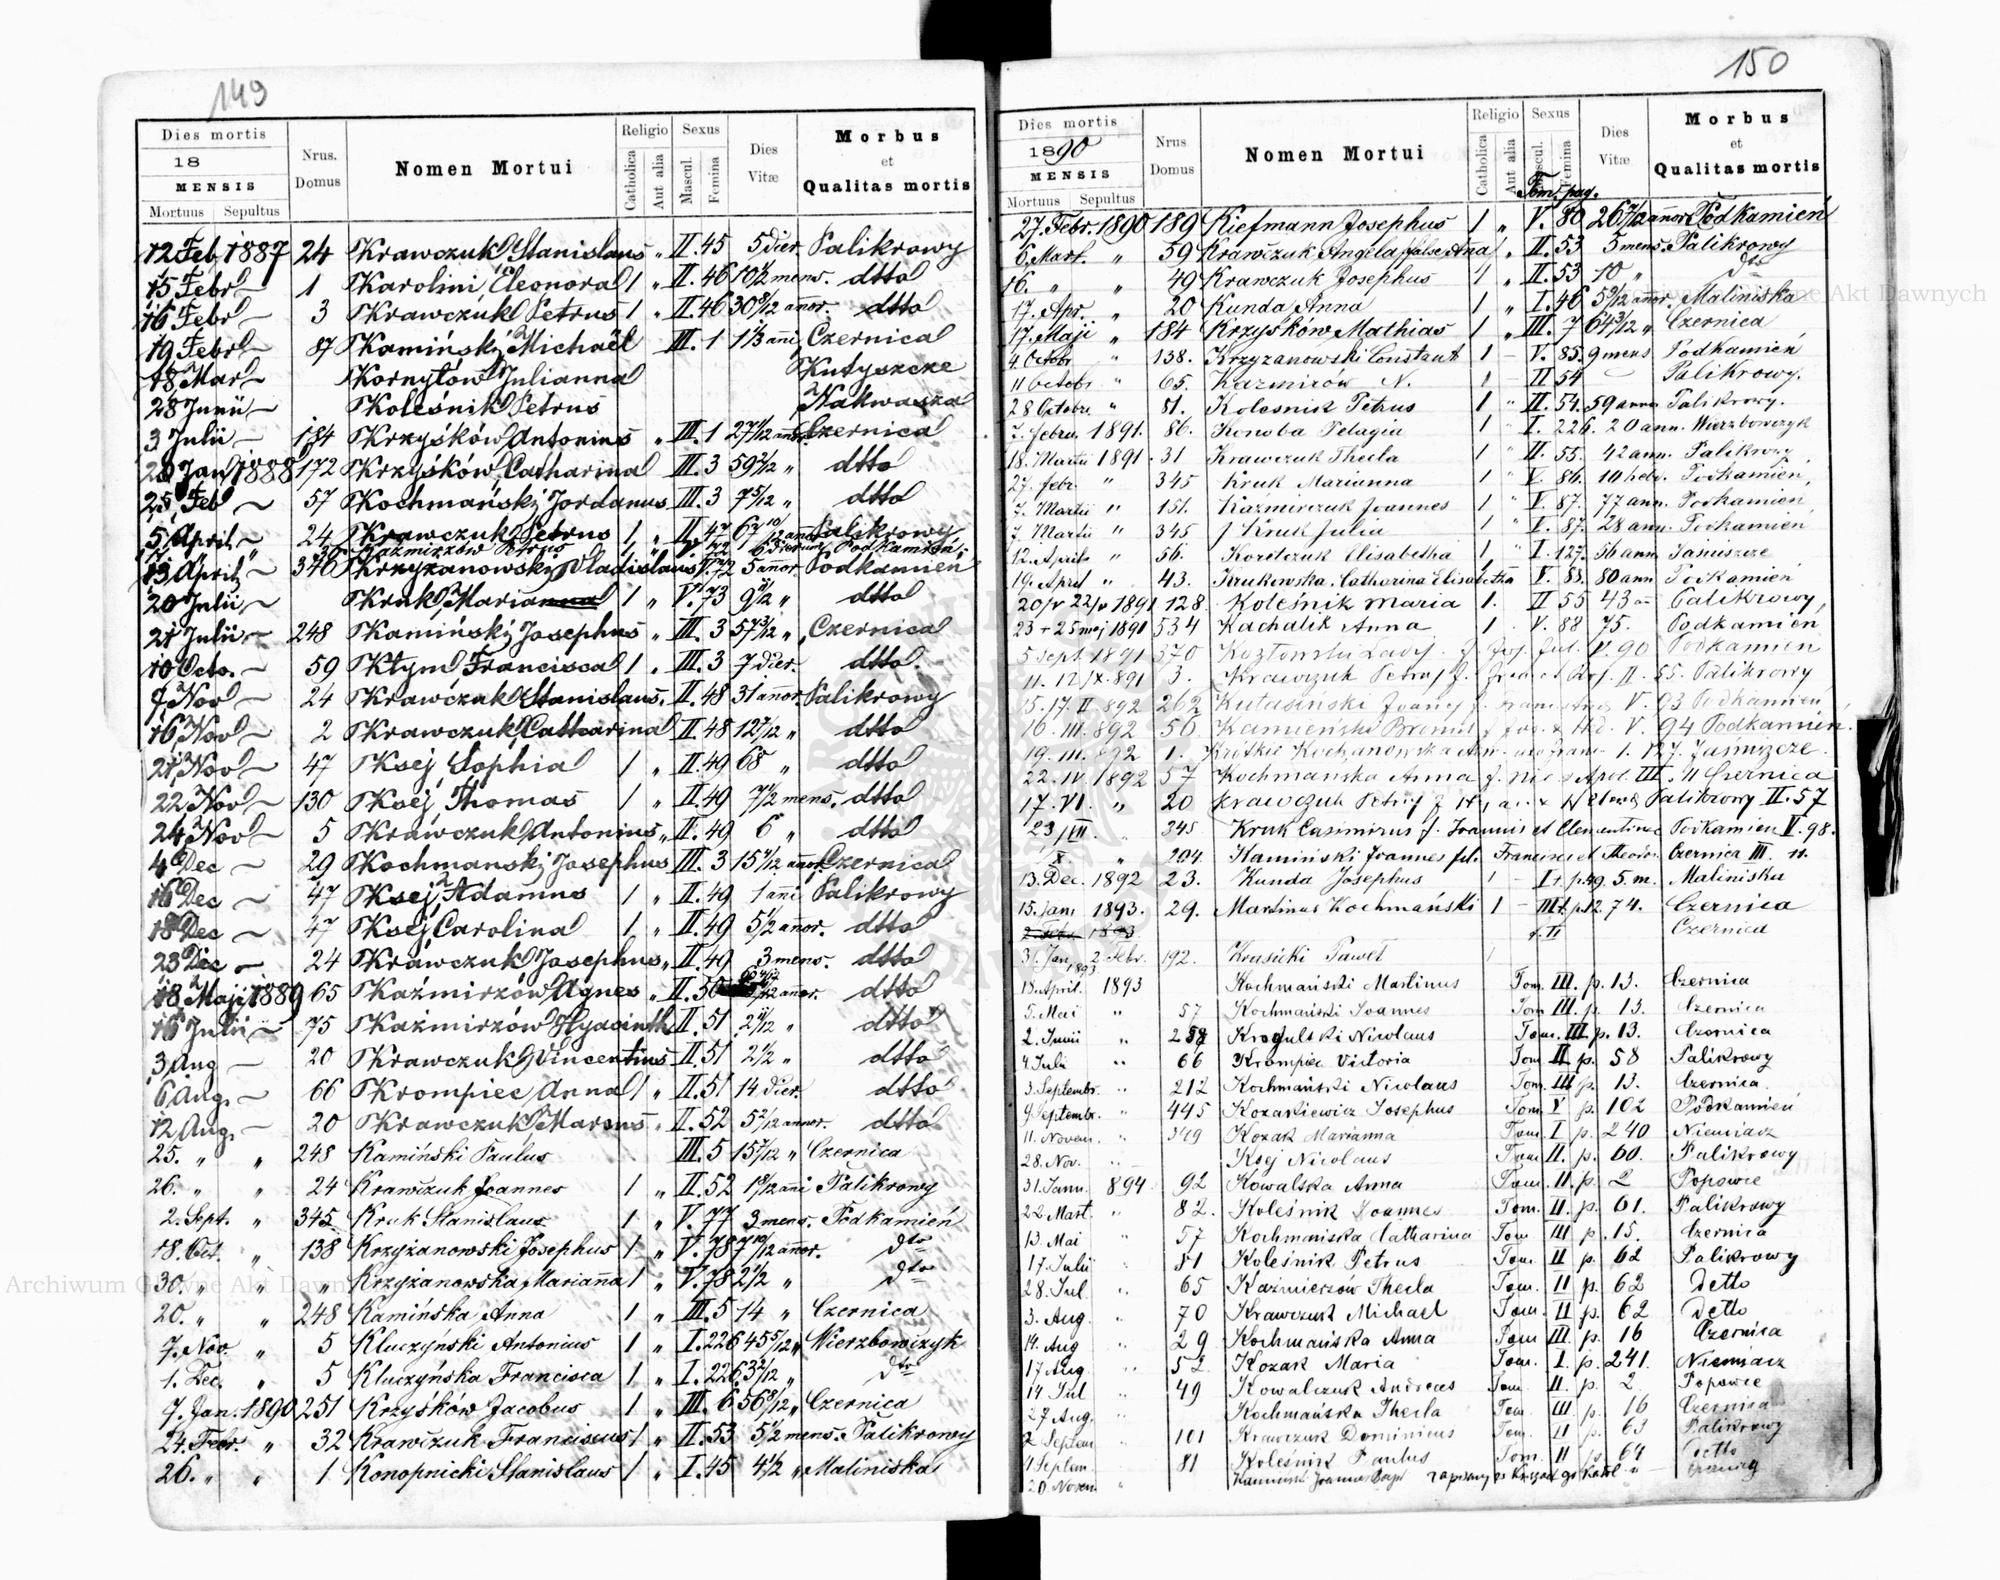 149
Dies mortis
18
MENSIS
Mortuus Sepultus
Nrus. Domus
Nomen Mortui
Religio
Catholica
Aut alia
Sexus
Mascul.
Femina
Dies Vitæ
Morbus
et
Qualitas mortis
12 Feb. 1887 24 Krawczuk Stanislaus " II. 45 5 dier. Palikrowy
15 Febr — 1 Karolini Eleonora 1 " II. 46 10 1/2 mens. dtto
16 Febr — 3 Krawczuk Petrus 1 " II. 46 30 8/12 añor. dtto
19 Febr — 87 Kamiński Michaël III. 1 1 1/3 añi Czernica
18 Mar — Kornyłów Julianna Kutyszcze
28 Junii — Koleśnik Petrus Nakwasza
3 Julii — 184 Krzyśków Antonius " III. 1 Czernica
23 Jan 1888 172 Krzyśków Catharina III. 3 59 2/12 " dtto
25 Feb — 57 Kochmański Jordanus III. 3 7 5/12 " dtto
5 April. — 24 Krawczuk Petrus 1 " II. 47 Palikrowy
Kaźmirzów Petrus Podkamień
13 April — 346 Krzyżanowski Vladislaus V. 72 5 añor. Podkamień
20 Julii — Kruk Marianna 1 " V. 73 dtto
21 Julii — 248 Kamiński Josephus " III. 3 57 3/12 " Czernica
10 Octo. — 59 Kłym Francisca 1 " III. 3 7 dier. dtto.
7 Nov — 24 Krawczuk Stanislaus. II. 48 31 añor. Palikrowy
16 Nov — 2 Krawczuk Catharina II. 48 dtto
21 Nov — 47 Ksej Sophia 1 " II. 49 68 " dtto
22 Nov — 130 Ksej Thomas 1 " II. 49 7 1/2 mens. dtto
24 Nov — 5 Krawczuk Antonius " II. 49 6 " dtto
4 Dec — 29 Kochmański Josephus III. 3 Czernica
16 Dec — 47 Ksej Adamus 1 " II. 49 1 añi Palikrowy
18 Dec — 47 Ksej Carolina 1 " II. 49 5 1/2 añor. dtto
23 Dec — 24 Krawczuk Josephus " II. 49 3 mens. dtto
18 Maji 1889 65 Kaźmirzów Agnes " II. 50 añor. dtto
16 Julii — 75 Kaźmirzów Hyacinth II. 51 dtto
3 Aug — 20 Krawczuk Vincentius II. 51 2 1/2 " dtto
6 Aug. — 66 Krompiec Anna 1 " II. 51 14 dier. dtto
12 Aug. — 20 Krawczuk Marcus " II. 52 5 2/12 annor. dtto
25. " " 248 Kamiński Paulus III. 5 15 7/12 " Czernica
26. " " 24 Krawczuk Joannes 1 " II. 52 1 8/12 añi Palikrowy
2. Sept. " 345 Kruk Stanislaus 1 " V. 77 3 mens. Podkamień
18. Oct. " 138 Krzyżanowski Josephus 1 " V. 78 7 10/12 añor. dto
30. " " " Krzyżanowska Marianna 1 " V. 78 2 1/2 " dto
20. " " 248 Kamińska Anna 1 " III. 5 14 " Czernica
7. Nov. " 5 Kluczyński Antonius 1 " I. 226 45 5/12 " Wierzbowczyk
1. Dec. " 5 Kluczyńska Francisca 1 " I. 226 32/12 " dto
7. Jan. 1890 251 Krzyśków Jacobus 1 " III. 6 56 8/12 " Czernica
24. Febr. " 32 Krawczuk Franciscus 1 " II. 53 5 1/2 mens. Palikrowy
26. " " 1 Konopnicki Stanislaus 1 " I. 45 4 1/2 " Maliniska
150
Dies mortis
1890
MENSIS
Mortuus Sepultus
Nrus. Domus
Nomen Mortui
Religio
Catholica
Aut alia
Sexus
Mascul.
Femina
Dies Vitæ
Morbus
et
Qualitas mortis
Tom. pag.
27. Febr. 1890 189 Kiefmann Josephus 1 " V. 80 26 7/12 añor. Podkamień
6. Mart. " 59 Krawczuk Angela false Aña 1 " II. 53 5 mens. Palikrowy
16. " " 49 Krawczuk Josephus 1 " II. 53 10 " dto
17. Apr. " 20 Kunda Anna 1 " I. 46 5 9/12 añor. Maliniska
17. Maji " 184 Krzyśków Mathias 1 " III. 7 64 3/12 " Czernica
4. Octobr " 138. Krzyzanowski Constant 1 – V. 85. 9 mens Podkamień
11 Octobr " 65. Kazmirów N. 1 – II 54 – Palikrowy.
28 Octobr " 81. Kolesnik Petrus 1 " II. 54. 59 anno Palikrowy.
7. febru. 1891. 86. Konoba Pelagia 1 " I. 226. 20 ann. Wierzbowczyk
18. Martii 1891. 31 Krawczuk Thecla 1 " II. 55. 42 ann. Palikrowy
27. febr. " 345 Kruk Marianna 1 " V. 86. 10 hebd. Podkamien
7. Martii " 151. Kaźmirczuk Joannes 1 " V. 87. 77 ann. Podkamien
7. Martii " 345 Kruk Julia 1 " V. 87. 28 ann. Podkamien
12. Aprilis " 56. Koretczuk Elisabetha 1 " I. 127. 56 ann Janiszcze
19. April " 43. Krukowska Catharina Elisabetha V. 88. 80 ann Podkamien
20/v 22/v 1891 128. Koleśnik Maria 1. II 55 43 Palikrowy
23 + 25 maj 1891 534 Kachalik Anna 1 V. 88 75. Podkamien
5 Sept. 1891 370 Kozłowski Ladis. V. 90 Podkamien
11. 12/IX. 891 3. Krawczuk Petrus II. 55. Palikrowy
15. 17. II. 892 262 Kutasinski V. 93 Podkamien
16. III. 892 50 Kamieński V. 94 Podkamień.
19. III. 892 1. Kochanowska I. 127. Janiszcze.
22. IV. 1892 57 Kochmańska Anna III. 11 Czernica
17. VI. " 20 Krawczuk Palikrowy II. 57
23/VII. " 345 Kruk Casimirus f. Joannis et Clementinae Podkamień V. 98.
X. " 204. Kamiński Joannes fil. Francisci et Theodor. Czernica III. 11.
13. Dec. 1892 23. Kunda Josephus 1 – I t. p. 49. 5. m. Maliniska
15. Jan. 1893. 29. Martinus Kochmański 1 – III t. p. 12. 74. Czernica
2. Febr. 1893 Czernica
31. Jan 2. Febr. 1893 192. Krusicki Paweł 1
18. April. 1893 Kochmański Martinus Tom. III. p. 13. Czernica
5. Mai " 57 Kochmański Joannes Tom III. p. 13. Czernica
2. Junii " 287 Krogulski Nicolaus Tom. III. p. 13. Czernica
4. Julii " 66 Krompiec Victoria Tom II. p. 58 Palikrowy
3. Septembr. " 212 Kochmański Nicolaus Tom. III p. 13. Czernica.
9. Septembr. " 445 Kozarkiewicz Josephus Tom. V p. 102 Podkamień
11. Novem. " 349 Kozak Marianna Tom. I p. 240 Niemiacz
28. Nov. " Ksej Nicolaus Tom II. p. 60. Palikrowy
31. Janu. 894. 92 Kowalska Anna Tom. II. p. 2 Popowce
22 Mart. " 82. Koleśnik Joannes Tom. II. p. 61. Palikrowy
13. Mai " 57 Kochmańska Catharina Tom III p. 15. Czernica
17. Julii " 81 Koleśnik Petrus Tom. II p. 62 Palikrowy
28. Jul. " 65 Kaźmierzów Thecla Tom. II p. 62 Detto
3. Aug. " 70 Krawczuk Michael Tom. II p. 62 Detto
14. Aug " 29 Kochmańska Anna Tom III. p. 16 Czernica
17. Aug. " 52 Kozak Maria Tom. I. p. 241. Niemiacz
14 Jul " 49 Kowalczuk Andreas Tom II. p. 2. Popowce
27 Aug. " Kochmańska Thecla Tom III p. 16 Czernica
2 Septem " 101 Krawczuk Dominicus Tom. II p. 63 Palikrowy
4 Septem. " 81 Koleśnik Paulus Tom. II p. 64 detto
20. Novem "
Archiwum Główne Akt Dawnych
Archiwum Główne Akt Dawnych